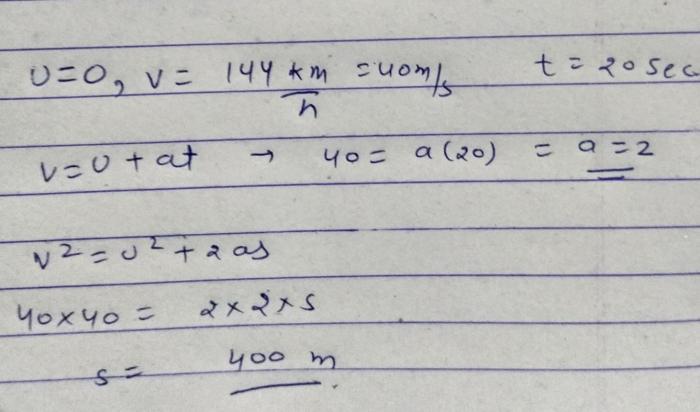 u=0, v= 144 km/h =40m/s t = 20 sec
v=u+at → 40= a(20) = a=2
v²=u²+2as
40×40= 2×2×s
s= 400 m.